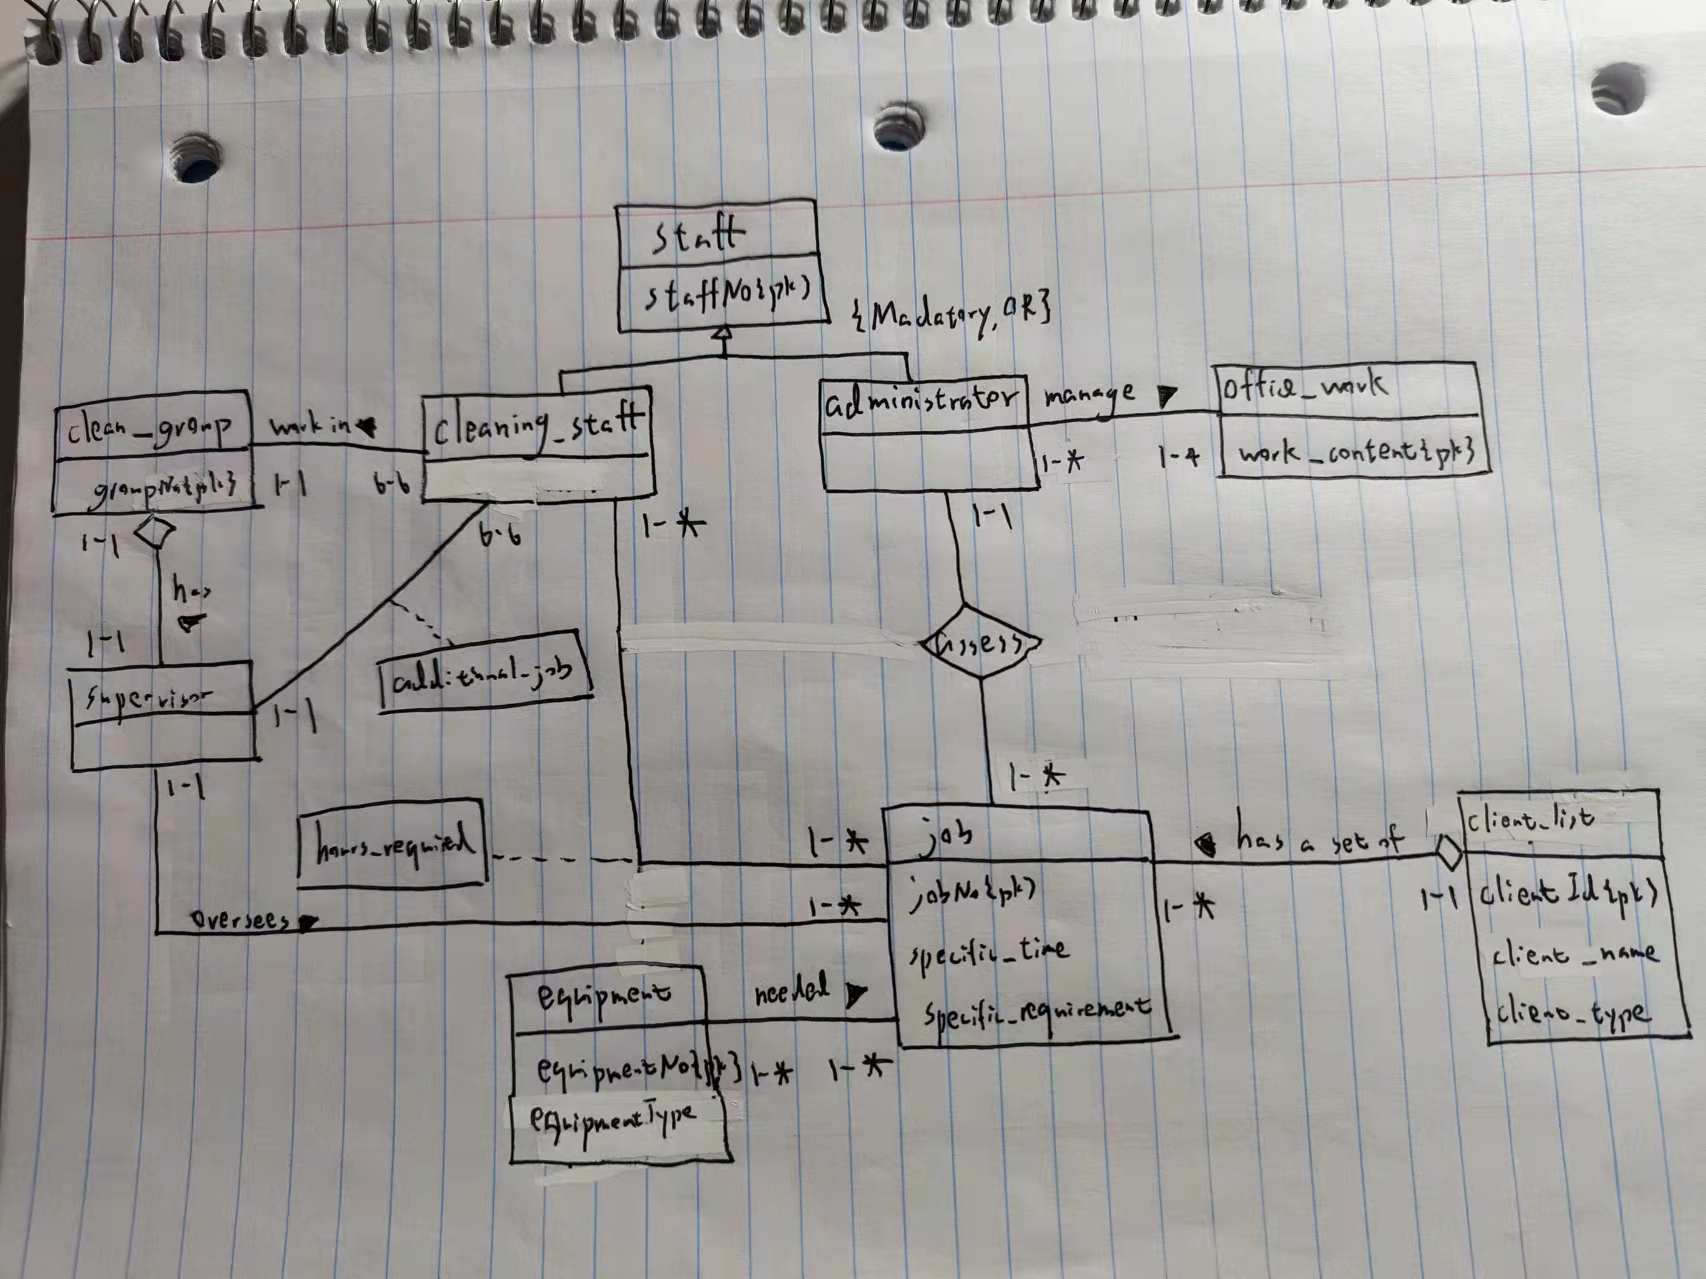 staff
staffNo{pk}
{Madatory, OR}
clean_group
groupNo{pk}
work in
1-1
6-6
cleaning_staff
administrator
manage
1-*
1-*
office_work
work_content{pk}
1-1
has
1-1
6-6
1-*
1-1
supervisor
1-1
additional_job
assess
1-1
1-*
hours_required
1-*
oversees
1-*
job
jobNo{pk}
specific_time
specific_requirement
has a set of
1-*
1-1
client_list
clientId{pk}
client_name
client_type
equipment
equipmentNo{pk}
equipmentType
needed
1-*
1-*